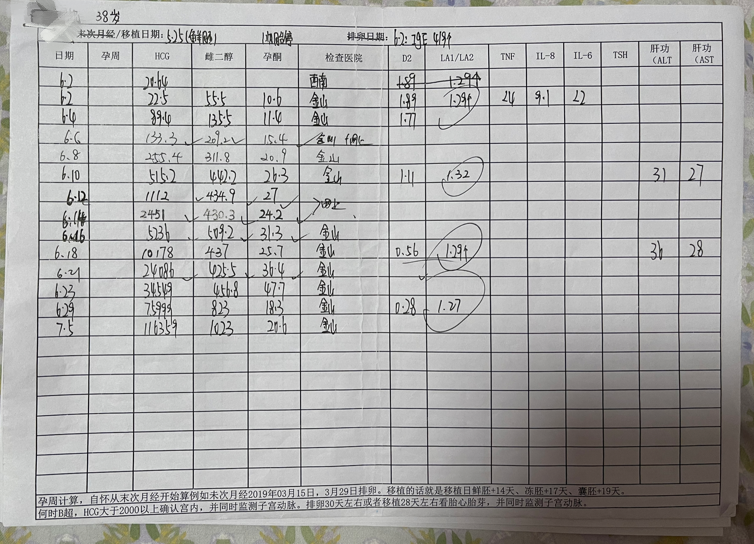 38岁
末次月经/移植日期: 5.25(鲜胚) 排卵日期: 6.2:
日期 孕周 HCG 雌二醇 孕酮 检查医院 D2 LA1/LA2 TNF IL-8 IL-6 TSH 肝功(ALT 肝功(AST
6.2 20.64 西南 1.89 1.294
6.2 22.5 55.5 10.6 金山 1.89 1.294 24 9.1 22
6.4 89.4 135.5 11.4 金山 1.77
6.6 133.3 209.2 15.4 金山
6.8 255.4 311.8 20.9 金山
6.10 515.2 442.2 26.3 金山 1.11 1.32 31 27
6.12 1112 434.9 27
6.14 2451 430.3 24.2
6.16 5236 509.2 31.3 金山
6.18 10178 437 25.7 金山 0.56 1.294 36 28
6.21 24086 425.5 36.4 金山
6.23 34549 456.8 47.7 金山
6.29 75999 823 18.3 金山 0.28 1.27
7.5 116359 1023 20.6 金山
孕周计算，自怀从末次月经开始算例如末次月经2019年03月15日，3月29日排卵。移植的话就是移植日鲜胚+14天、冻胚+17天、囊胚+19天。
何时B超，HCG大于2000以上确认宫内，并同时监测子宫动脉。排卵30天左右或者移植28天左右看胎心胎芽，并同时监测子宫动脉。